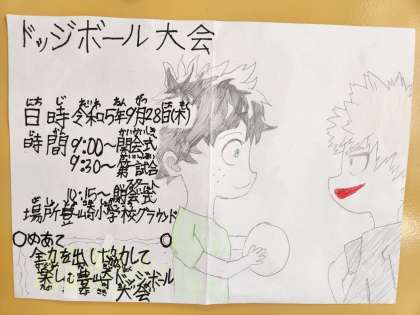 ドッジボール大会
日時 令和5年9月28日(木)
時間 9:00~開会式
9:30~第一試合
10:15~閉会式
場所 豊崎小学校グラウンド
○めあて○
全力を出し協力して
楽しむ豊崎ドッジボール
大会